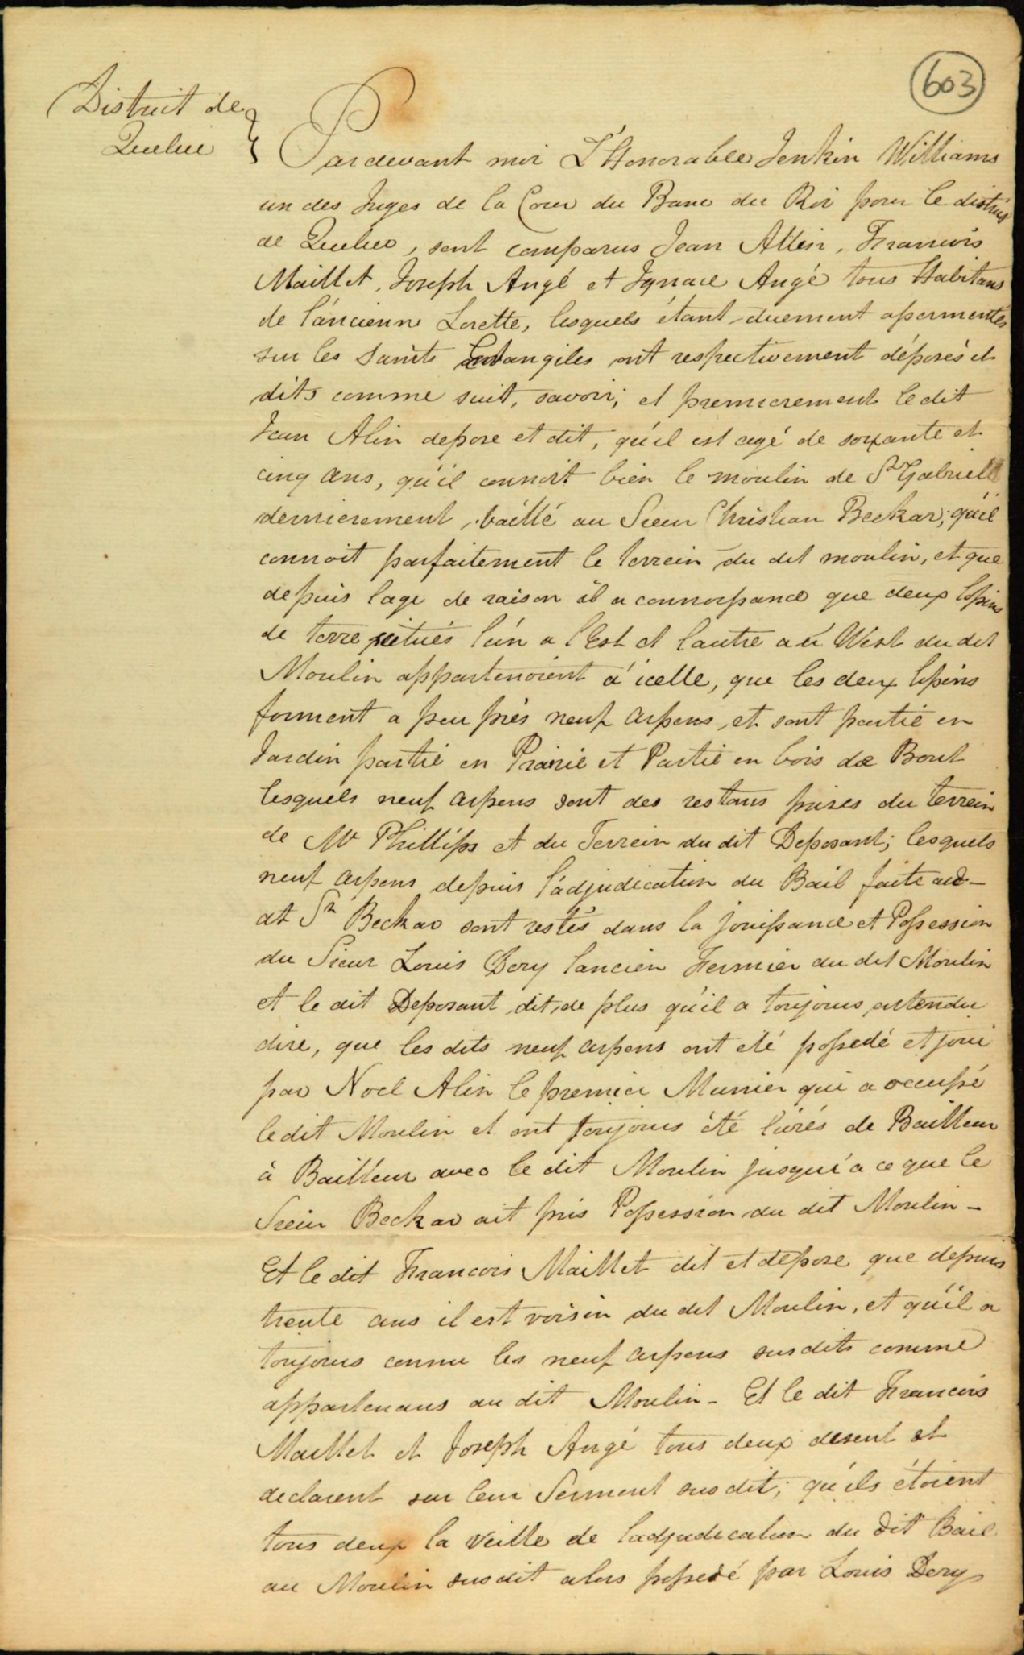 603
District de
Quebec
Pardevant moi L'Honorable Jenkin Williams
un des Juges de la Cour du Banc du Roi pour le district
de Quebec, sont comparus Jean Allin, Francois
Maillet, Joseph Angé et Ignace Angé tous Habitans
de l'áncienne Lorette, lesquels étant duement
sur les Saints Evangiles ont respectivement déposés et
dits comme suit, savoir; et premierement le dit
Jean Alin depose et dit, qu'il est agé de soixante et
cinq ans, qu'il connoit bien le moulin de St Gabriell
dernierement baillé au Sieur Christian Beckar; qu'il
connoit parfaitement le terrein du dit moulin, et que
depuis l'age de raison il a connoissance que deux lopins
de terre situés l'un a l'Est et l'autre au West du dit
Moulin appartenoient á icelle, que les deux lopins
forment a peu près neuf arpens, et sont partie en
Jardin partie en Prairie et Partie en bois de Bout
lesquels neuf arpens sont des restans prises du terrein
de Mr Phillips et du Terrein du dit Deposant; lesquels
neuf arpens depuis l'adjudication du Bail faite au-
dt Sr Beckar sont restés dans la jouissance et Possession
du Sieur Louis Dery l'ancien Fermier du dit Moulin
et le dit Deposant dit, de plus qu'il a toujours entendu
dire, que les dits neuf arpens ont eté possedé et joui
par Noel Alin le premier Munier qui a occupé
le dit Moulin et ont toujours été livrés de Bailleur
à Bailleur avec le dit Moulin jusqu'a ce que le
Sieur Beckar ait pris Possession du dit Moulin -
Et le dit Francois Maillet dit et depose que depuis
trente ans il est voisin du dit Moulin, et qu'il a
toujours connu les neuf arpens susdits comme
appartenans au dit Moulin - Et le dit Francois
Maillet et Joseph Angé tous deux disent et
declarent sur leur Serment susdit; qu'ils étoient
tous deux la veille de l'adjudication du dit Bail
au Moulin susdit alors possedé par Louis Dery